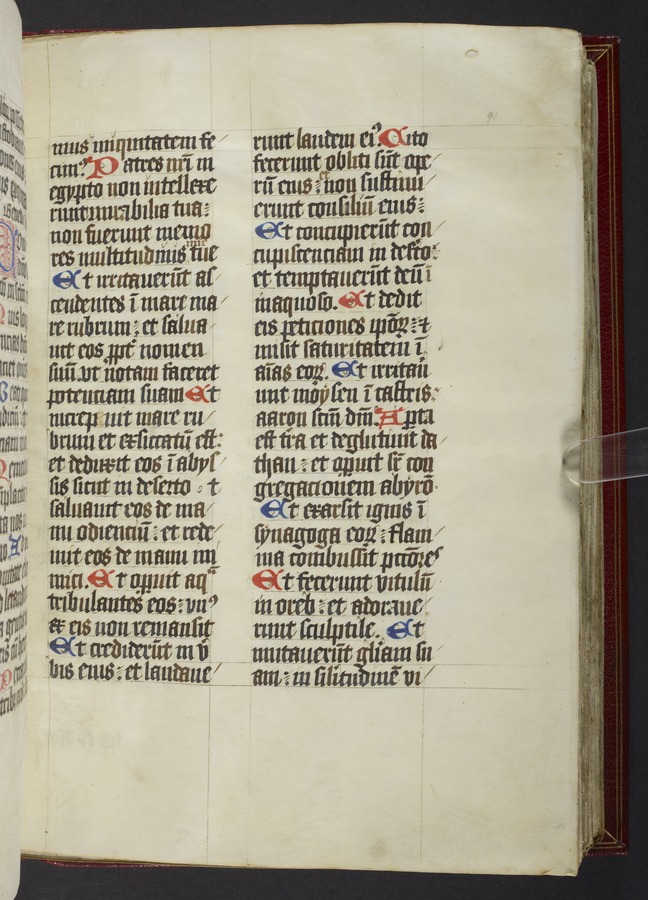 mus iniquitatem fe
cim⁹. Patres nr̄i in
egypto non intellexe
runt mirabilia tua:
non fuerunt memo
res multitudinis mie tue
Et irritauerūt as
cendentes ī mare ma
re rubrum: et salua
uit eos ꝓpt̄ nomen
suū. vt notam faceret
potenciam suam Et
increpauit mare ru
brum et exsiccatū est:
et deduxit eos ī abys
sis sicut in deserto et
saluauit eos de ma
nu odienciū: et rede
mit eos de manu ini
mici. Et opuit aqa
tribulantes eos: vn⁹
ex eis non remansit
Et crediderūt in v̄
bis eius: et laudaue
91
runt laudem ei⁹. Cito
fecerunt obliti sūt ope
rū eius: et non sustinu
erunt consiliū eius:
Et concupierūt con
cupiscenciam in deserto:
et temptauerūt deū ī
inaquoso. Et dedit
eis peticiones ipōꝝ: et
misit saturitatem ī
aīas eoꝝ. Et irritau̅
unt moysen ī castris:
aaron scm̄ dm̄. Apta
est tr̄a et deglutiuit da
than: et opuit sr̄ con
gregacionem abyrō
Et exarsit ignis ī
synagoga eoꝝ: flam
ma combussit pctōres
Et fecerunt vitulū
in oreb: et adoraue
runt sculptile. Et
mutauerūt gl̄iam su
am: in sil̄itudinē vi